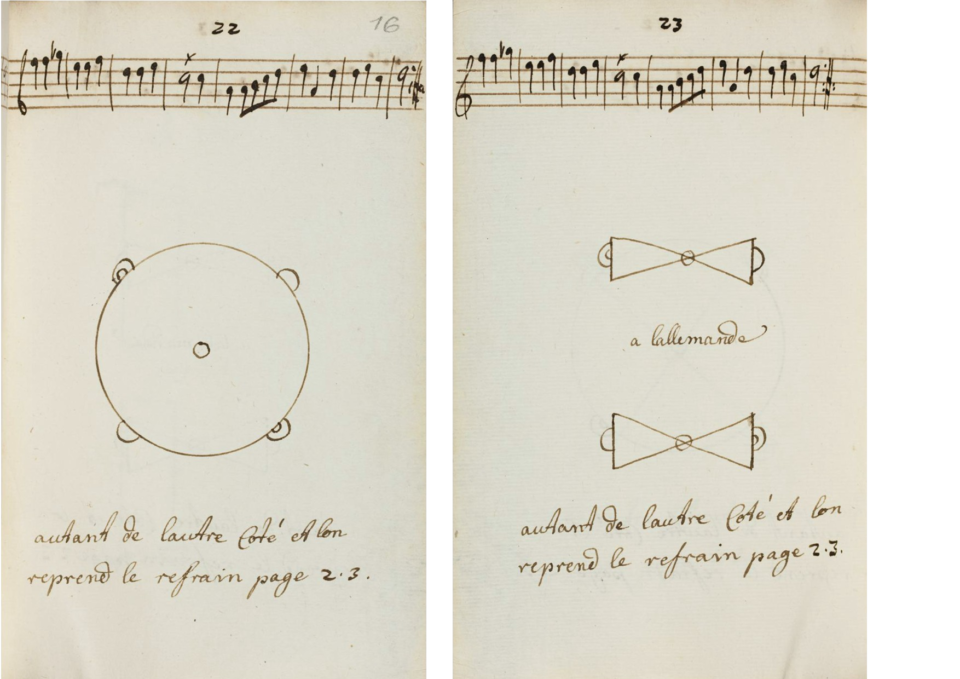 22
16
autant de lautre Coté et lon
reprend le refrain page 2.3.
23
a lallemande
autant de lautre Coté et lon
reprend le refrain page 2.3.